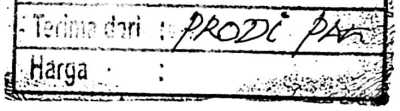 Terima dari : PRODI PAK
Harga :